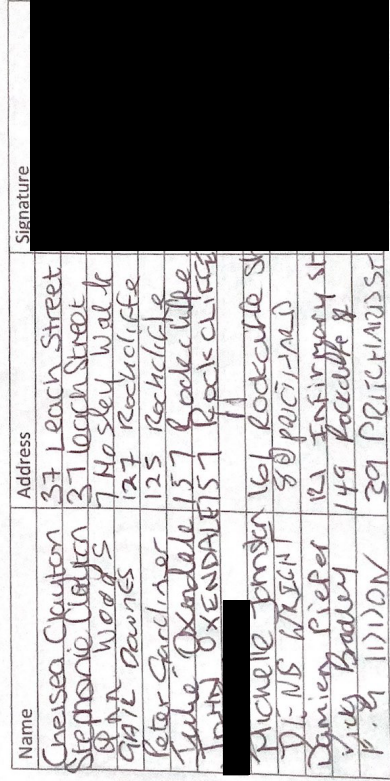 Name Address Signature
Chelsea Clayton 37 Leach Street
Stephanie Clayton 37 Leach Street
Ann Woods 7 Mosley Walk
GAIL Downes 127 Rockcliffe
Peter Gardiner 125 Rockcliffe
Julie Oxendale 157 Rockcliffe
JOHN OXENDALE 157 ROCKCLIFFE
Michelle Johnson 161 Rockcliffe St
WRIGHT 80 PRITCHARD
Damien Pieper 121 Infirmary St
Vicky Bradley 149 Rockcliffe St
39 PRITCHARD ST